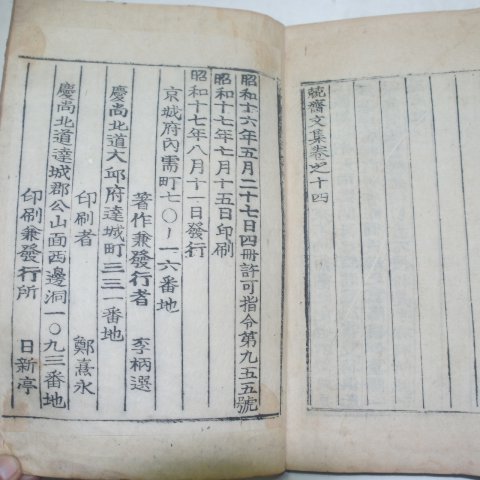 兢齋文集卷之十四
昭和十六年五月二十七日四冊許可指令第九五五號
昭和十七年七月十五日印刷
昭和十七年八月十一日發行
京城府內需町七〇ー一六番地
著作兼發行者 李柄選
慶尚北道大邱府達城町三三一番地
印刷者 鄭熹永
慶尚北道達城郡公山面西邊洞一〇九三番地
印刷兼發行所 日新亭